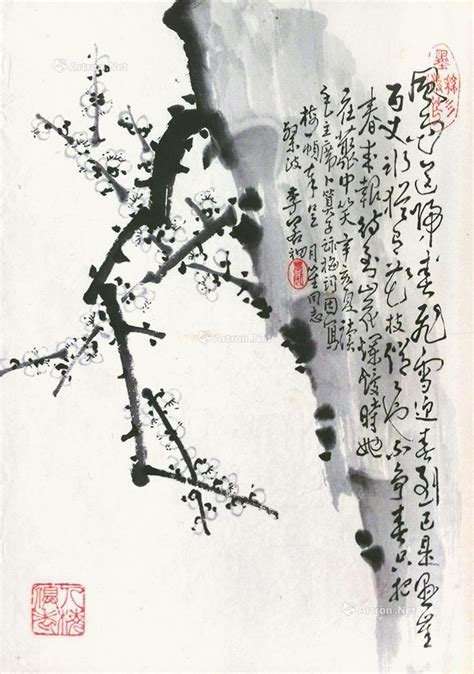 風雨送歸春飛雪迎春到已是悬崖
百丈冰犹有花枝俏俏也不争春只把
春来報待到山花爛漫時她
在叢中笑 辛亥夏读
毛主席卜算子咏梅詞因寫
梅一帧奉呈月 同志
政 李
Artron.Net
Artron.Net
Artron.Net